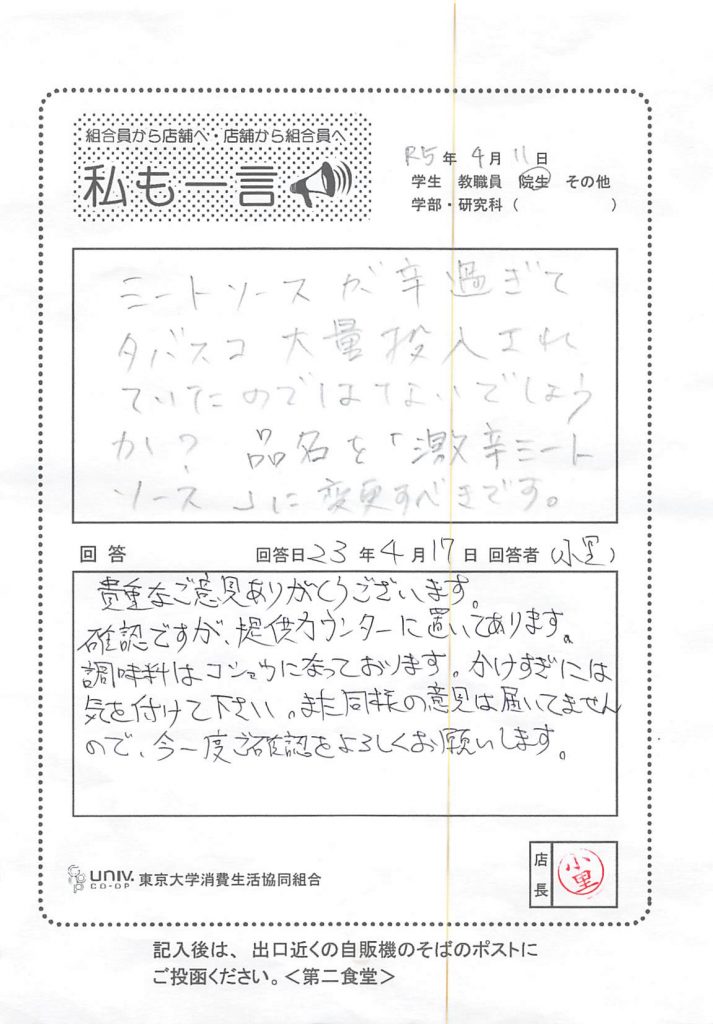 組合員から店舗へ・店舗から組合員へ
私も一言
R5年 4月 11日
学生 教職員 院生 その他
学部・研究科 ( )
ミートソースが辛過ぎて
タバスコ大量投入され
ていたのではないでしょう
か? 品名を「激辛ミート
ソース」に変更すべきです。
回答 回答日23年4月17日 回答者(小里)
貴重なご意見ありがとうございます。
確認ですが、提供カウンターに置いてあります。
調味料はコショウになっております。かけすぎには
気を付けて下さい。また同様の意見は届いてません
ので、今一度ご確認をよろしくお願いします。
UNIV. CO-OP 東京大学消費生活協同組合
店長 小里
記入後は、出口近くの自販機のそばのポストに
ご投函ください。<第二食堂>